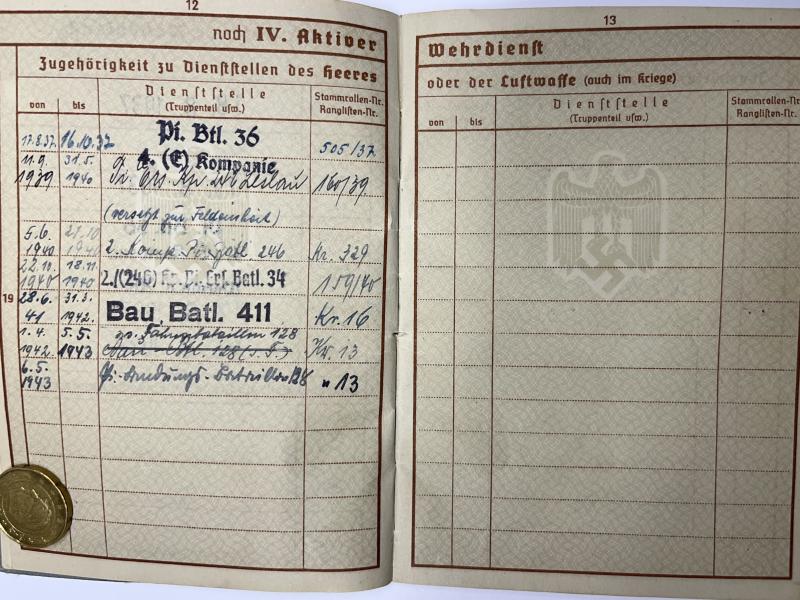 12
noch IV. Aktiver
Zugehörigkeit zu Dienststellen des Heeres
von bis Dienststelle (Truppenteil usw.) Stammrollen-Nr. Ranglisten-Nr.
17.8.37 16.10.37 Pi. Btl. 36 505/37
4. (E) Kompanie
11.9. 31.5.
1939 1940 Pi. Ers. Kp. 160/39
(versetzt zur Feldeinheit)
5.6. 21.10
1940 1940 2. Komp. Pi. Batl 246 Kr. 329
22.10. 18.11.
1940 1940 2./(246) Pi. Ers. Batl. 34 159/40
19
28.6. 31.3.
41 1942. Bau Batl. 411 Kr. 16
1.4. 5.5. 128
1942. 1943 Kr. 13
6.5.
1943 Pi.-Landungs-Bataillon 128 " 13
13
Wehrdienst
oder der Luftwaffe (auch im Kriege)
von bis Dienststelle (Truppenteil usw.) Stammrollen-Nr. Ranglisten-Nr.